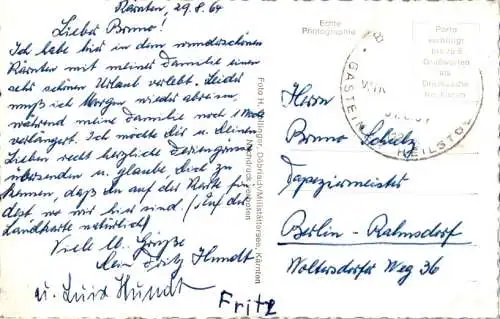 Kärnten, 29.8.64
Lieber Bruno!
Ich habe hier in dem wunderschönen
Kärnten mit meiner Familie einen
sehr schönen Urlaub verlebt. Leider
muß ich Morgen wieder abreisen,
während meine Familie noch 1 Woche
verlängert. Ich möchte Dir u. Deinen
Lieben recht herzliche Feriengrüße
übersenden u. glaube, Dich zu
kennen, daß Du auf der Karte
dest, wo wir hier sind (Auf der
Landkarte natürlich)
Viele Grüße
Dein Fritz Hundt
u. Luis Hundt
Fritz
Foto H. Döbriach/Millstättersee, Kärnten
Nachdruck verboten
Echte
Photographie
Porto
ermäßigt
bis zu 5
Grußworten
als
Drucksache
bei Karten
GASTEIN HEILSTOL
Herrn
Bruno Schulz
Tapeziermeister
Berlin - Rahnsdorf
Woltersdorfer Weg 36